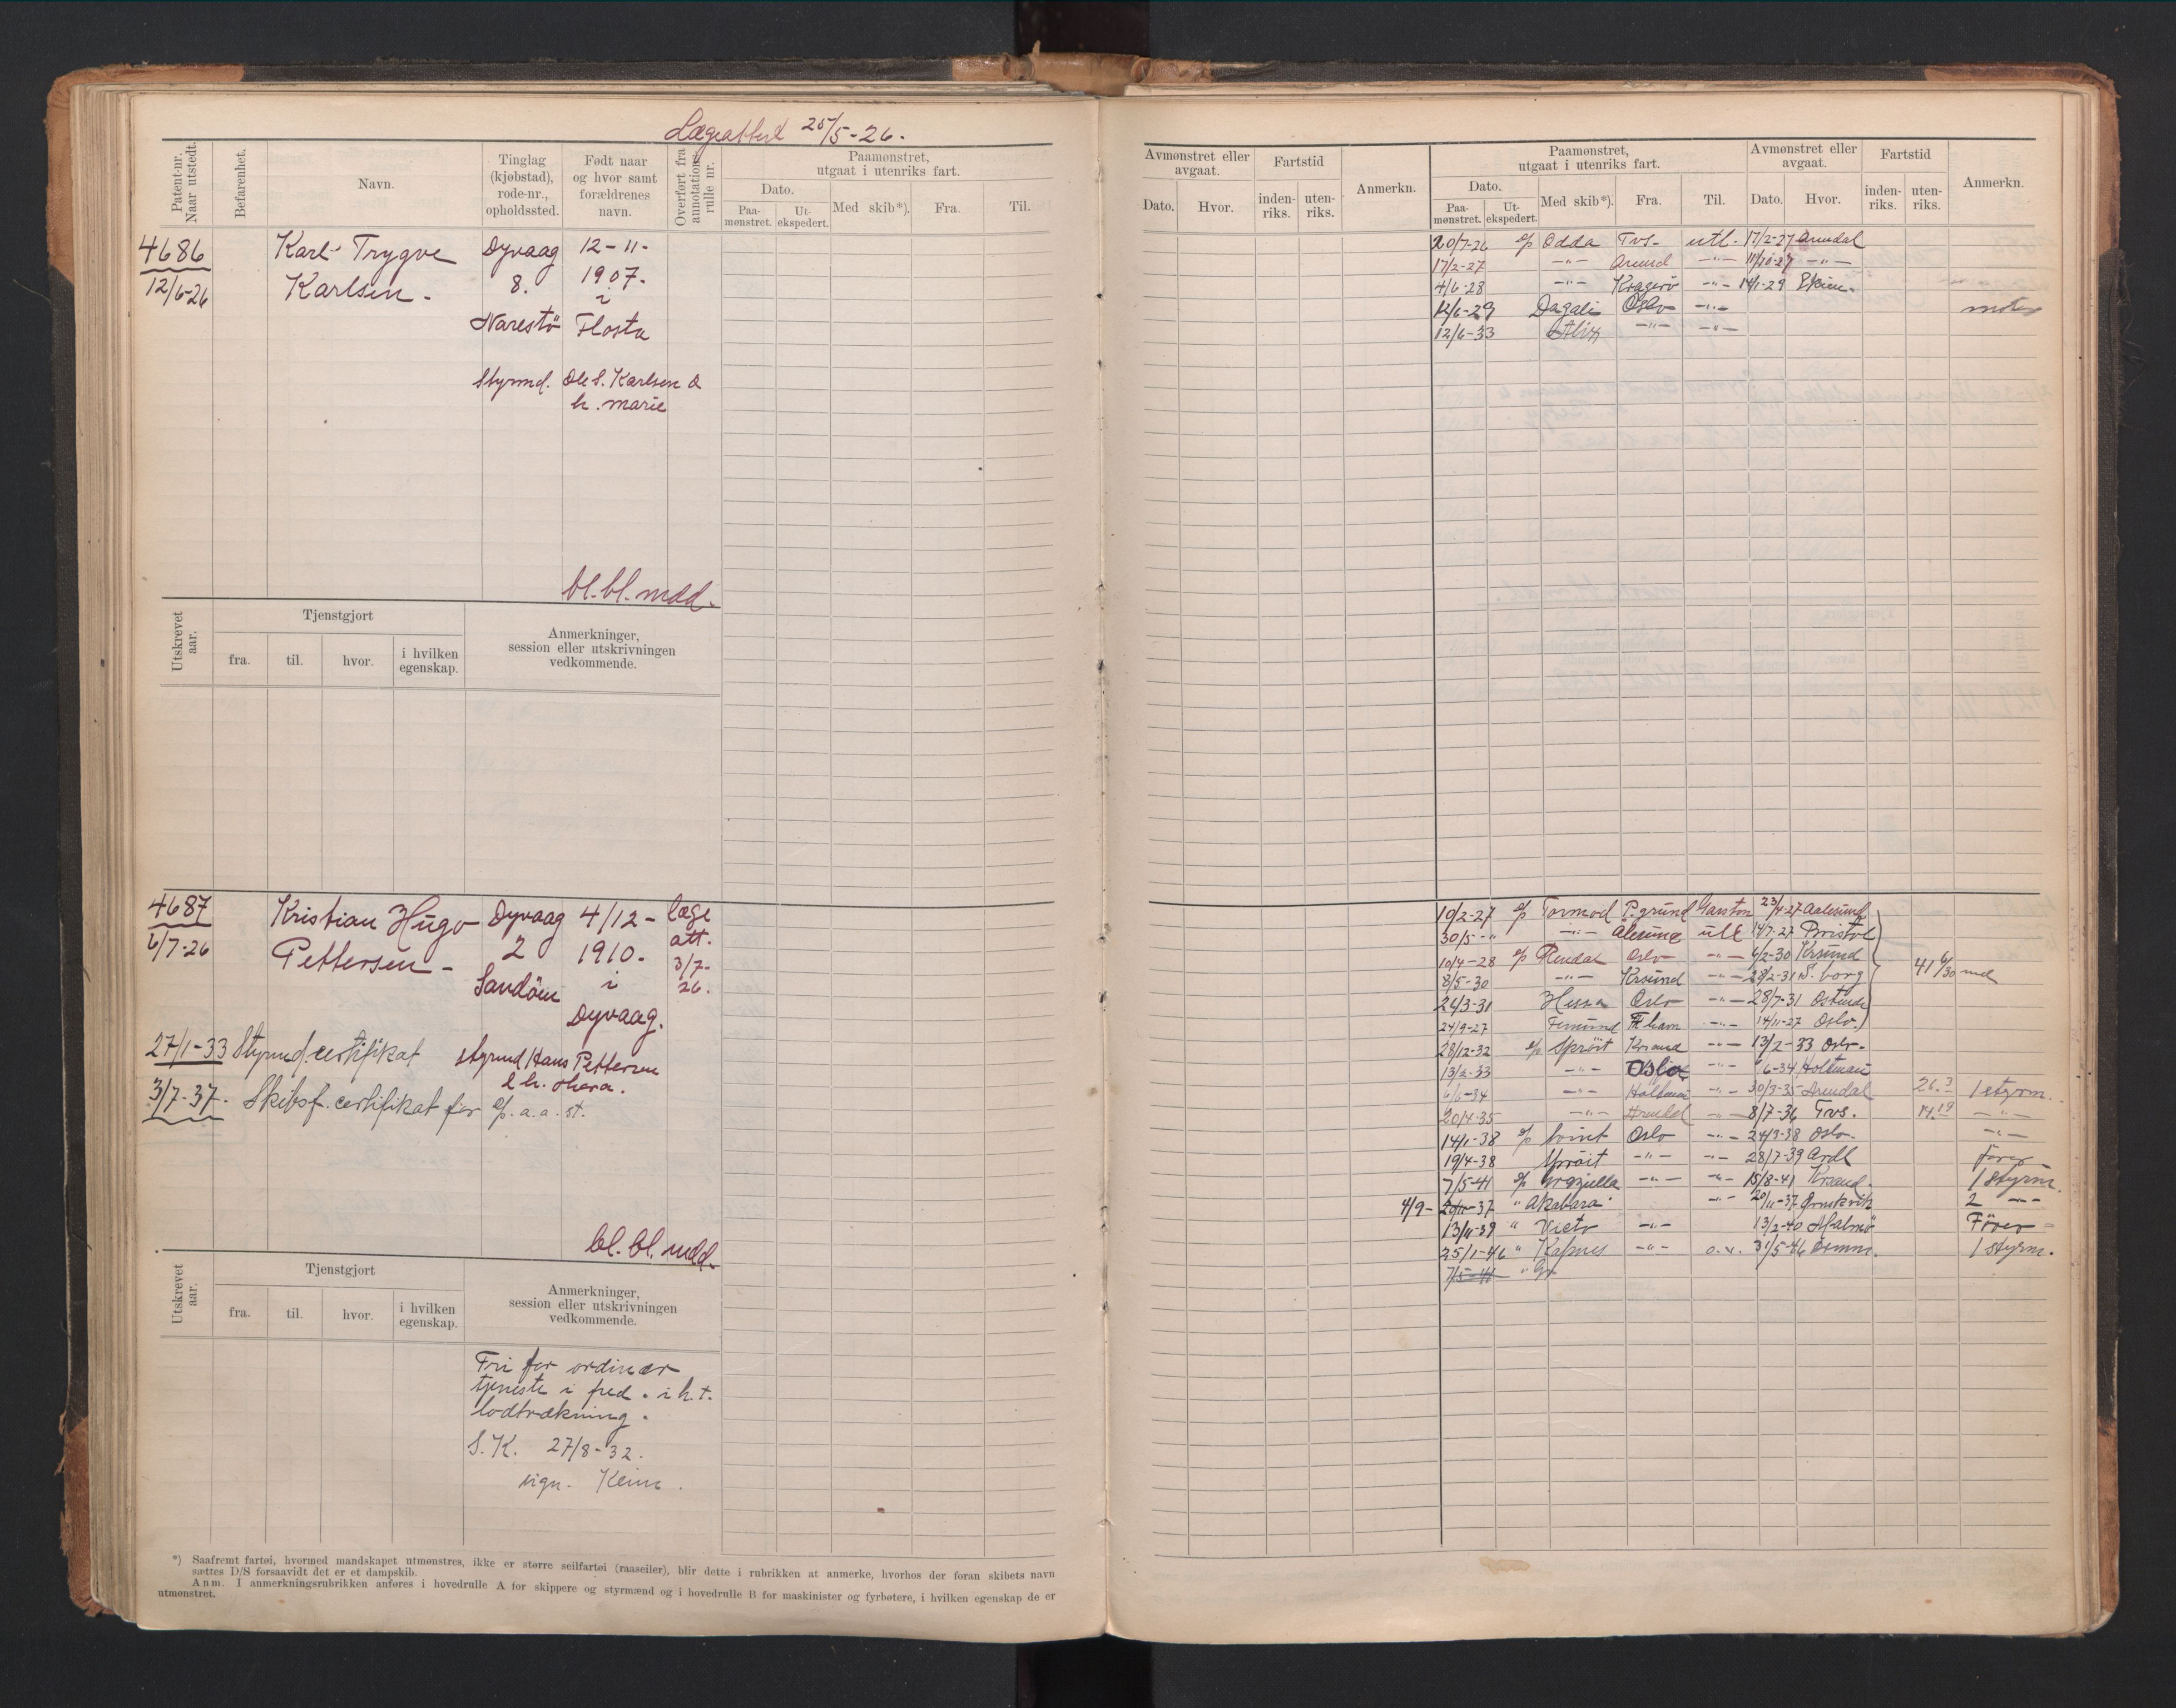 Lægeattest 25/5-26.
Patent-nr. Naar utstedt.
Befarenhet.
Navn.
Tinglag (kjøbstad), rode-nr., opholdssted.
Født naar og hvor samt forældrenes navn.
Overført fra annotations- rulle nr.
Paamønstret, utgaat i utenriks fart.
Dato.
Paa- mønstret.
Ut- ekspedert.
Med skib*).
Fra.
Til.
4686
12/6-26
Karl Trygve
Karlsen.
Dyvaag
8.
Narestö
12-11-
1907.
i
Flosta
Styrmd. Ole S. Karlsen &
h. Marie
bl.bl. mdd.
Utskrevet aar.
Tjenstgjort
fra.
til.
hvor.
i hvilken egenskap.
Anmerkninger,
session eller utskrivningen
vedkommende.
4687
6/7-26
Kristian Hugo
Pettersen -
Dyvaag
2
Sandöen
4/12-
1910.
i
Dyvaag.
læge
att.
3/7-
26.
27/1-33 Styrmd. certifikat
styrmd Hans Pettersen
& h.
3/7-37. Skibsf. certifikat for s/s. a. a. st.
bl. bl. mdd.
Utskrevet aar.
Tjenstgjort
fra.
til.
hvor.
i hvilken egenskap.
Anmerkninger,
session eller utskrivningen
vedkommende.
Fri for ordinær
tjeneste i fred. i h.t.
lodtrækning.
S.K. 27/8-32.
sign. Keim.
*) Saafremt fartøi, hvormed mandskapet utmønstres, ikke er større seilfartøi (raaseiler), blir dette i rubrikken at anmerke, hvorhos der foran skibets navn
sættes D/S forsaavidt det er et dampskib.
Anm. I anmerkningsrubrikken anføres i hovedrulle A for skippere og styrmænd og i hovedrulle B for maskinister og fyrbøtere, i hvilken egenskap de er
utmønstret.
Avmønstret eller avgaat.
Dato.
Hvor.
Fartstid
inden- riks.
uten- riks.
Anmerkn.
Paamønstret, utgaat i utenriks fart.
Dato.
Paa- mønstret.
Ut- ekspedert.
Med skib*).
Fra.
Til.
Avmønstret eller avgaat.
Dato.
Hvor.
Fartstid
inden- riks.
uten- riks.
Anmerkn.
20/7-26 s/s Odda Tvs- utl. 17/2-27 Arendal
17/2-27 -"- Arend -"- 11/10-27 -"-
4/6-28 -"- Kragerö -"- 14/1-29 Skien.
12/6-29 Dagali Oslo -"-
12/6-33 -"- -"-
10/2-27 s/s Tormod P.grund Garston 23/4-27 Aalesund
30/5-" -"- Alesund utl 14/7-27 Bristol
10/4-28 s/s Rendal Oslo -"- 6/2-30 Krsund
8/5-30 -"- Krsund -"- 28/2-31 S.borg 41 6/30 md
24/3-31 Oslo -"- 28/7-31 Ostende
24/9-27 Femund -"- 14/11-27 Oslo.
28/12-32 s/s Spröit Krsand -"- 13/2-33 Oslo-
13/2-33 -"- Oslo -"- 6/6-34 Holtmaa
6/6-34 -"- -"- 30/3-35 Arendal 1 styrm.
20/4-35 -"- Arendal -"- 8/7-36 Tvs. -"-
14/1-38 s/s Oslo -"- 24/3-38 Oslo. -"-
19/4-38 Spröit -"- -"- 28/7-39 Ardl Förer
7/5-41 s/s Grazuella -"- -"- 15/8-41 Krsand. 1 styrm.
4/9- 20/11-37 " Akabara -"- 20/11-37 Ørnskvik 2 -"-
13/11-39 " Victo -"- 13/2-40 Malmö Förer
25/1-46 " Kapnes -"- o.v. 31/5-46 1 styrm.
7/5-41 " Gr